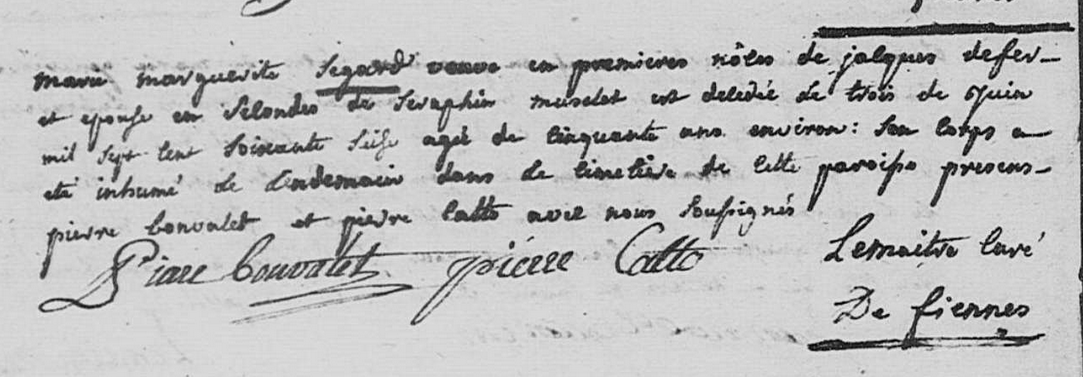 marie marguerite Segard veuve en premieres nôces de jacques defer_
et epouse en secondes de Seraphin muselet est decedée le trois de Juin
mil sept cent soixante seise agé de cinquante ans environ: son corps a
eté inhumé le lendemain dans le cimetière de cette paroisse presens_
pierre bouvalet et pierre Catto avec nous soussignés
Piare bouvalet pierre Catto Lemaitre Curé
De fiennes